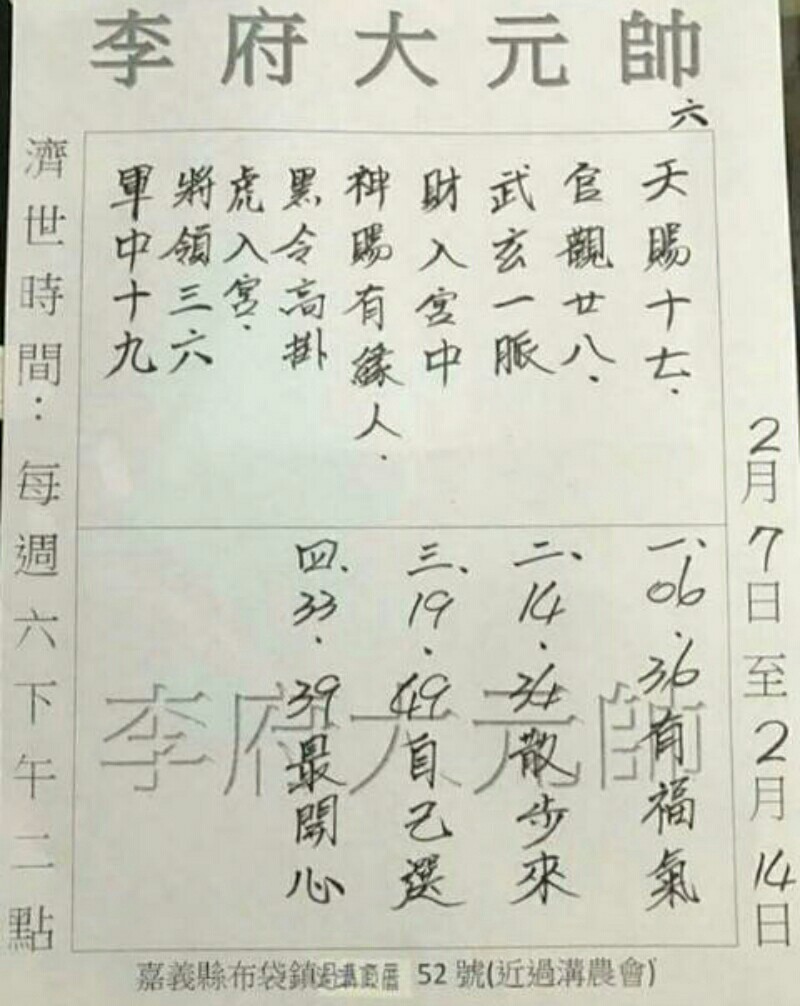 李府大元帥
六
天賜十七.
官觀廿八.
武玄一脈
財入宮中
神賜有緣人.
黑令高掛
虎入宮.
將領三六
軍中十九
一、06.36有福氣
二、14.34散步來
三、19.49自己選
四、33.39最開心
李府大元帥
2月7日至2月14日
濟世時間：每週六下午二點
嘉義縣布袋鎮 52號(近過溝農會)